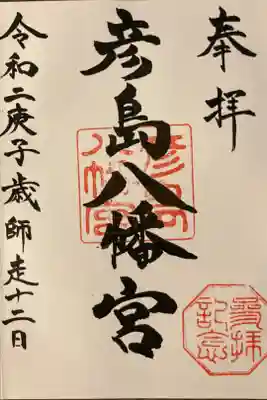 奉拝
彦島八幡宮
令和二庚子歳師走十二日
彦島八幡宮
参拝記念